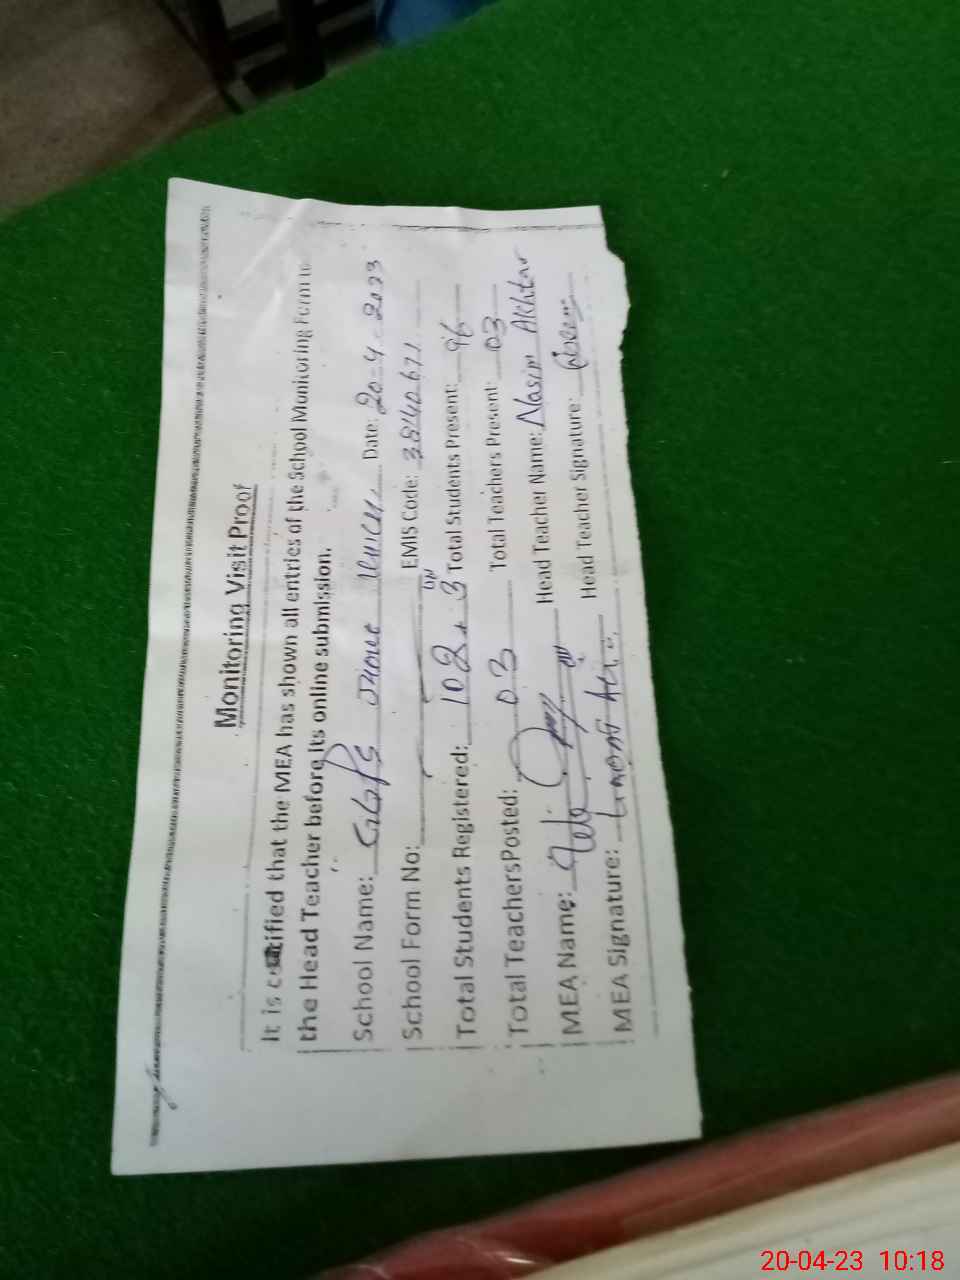 Monitoring Visit Proof
It is certified that the MEA has shown all entries of the School Monitoring Form to
the Head Teacher before its online submission.
School Name: GGPS Date: 20-4-2023
School Form No: EMIS Code: 38140671
Total Students Registered: 102+3 Total Students Present: 96
Total TeachersPosted: 03 Total Teachers Present: 03
MEA Name: Head Teacher Name: Nasim Akhtar
MEA Signature: Head Teacher Signature:
20-04-23 10:18